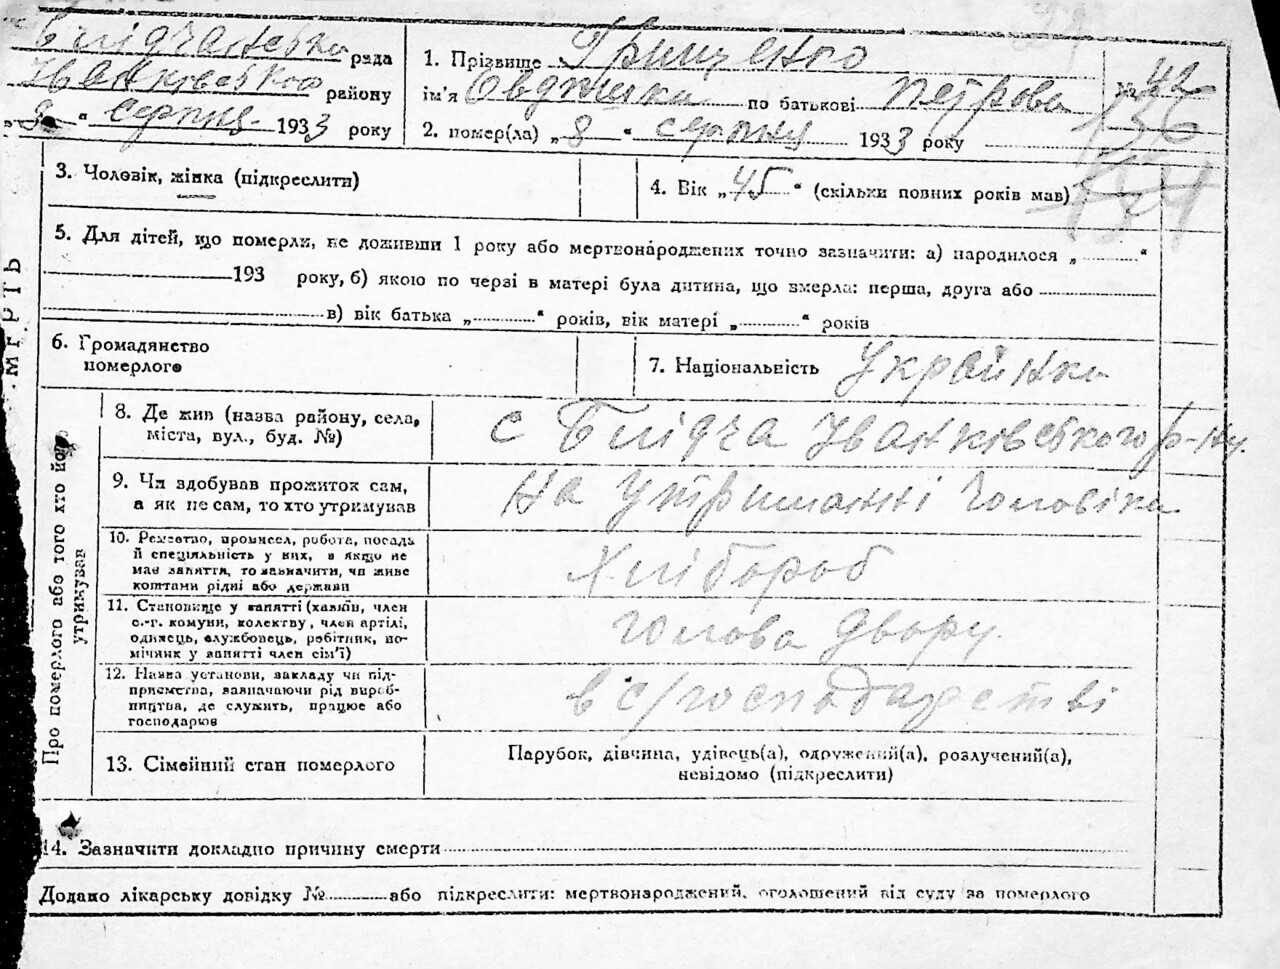 Блідчанська рада
Іванківського району
„8“ серпня 1933 року
1. Прізвище Грищенко
ім'я Овдюшка по батькові Петрова
2. помер(ла) „8“ серпня 1933 року
№ 42
136
3. Чоловік, жінка (підкреслити)
4. Вік „45“ (скільки повних років мав)
5. Для дітей, що померли, не доживши 1 року або мертвонароджених точно зазначити: а) народилося „.........“
193 року, б) якою по черзі в матері була дитина, що вмерла: перша, друга або
в) вік батька „.........“ років, вік матері „.........“ років
6. Громадянство
померлого
7. Національність Українка
СМЕРТЬ
Про померлого або того хто його
утримував
8. Де жив (назва району, села,
міста, вул., буд. №)
с Блідча Іванківського р-ну.
9. Чи здобував прожиток сам,
а як не сам, то хто утримував
На утриманні чоловіка
10. Ремество, промисел, робота, посада
й спеціяльність у них, а якщо не
має заняття, то зазначити, чи живе
коштами рідні або держави
Хлібороб
11. Становище у занятті (хазяїн, член
с.-г. комуни, колективу, член артілі,
одинець, службовець, робітник, по-
мічник у занятті член сім'ї)
голова двору
12. Назва установи, закладу чи під-
приємства, зазначаючи рід вироб-
ництва, де служить, працює або
господарює
в с/господарстві
13. Сімейний стан померлого
Парубок, дівчина, удівець(а), одружений(а), розлучений(а),
невідомо (підкреслити)
14. Зазначити докладно причину смерти
Додано лікарську довідку № або підкреслити: мертвонароджений, оголошений від суду за померлого